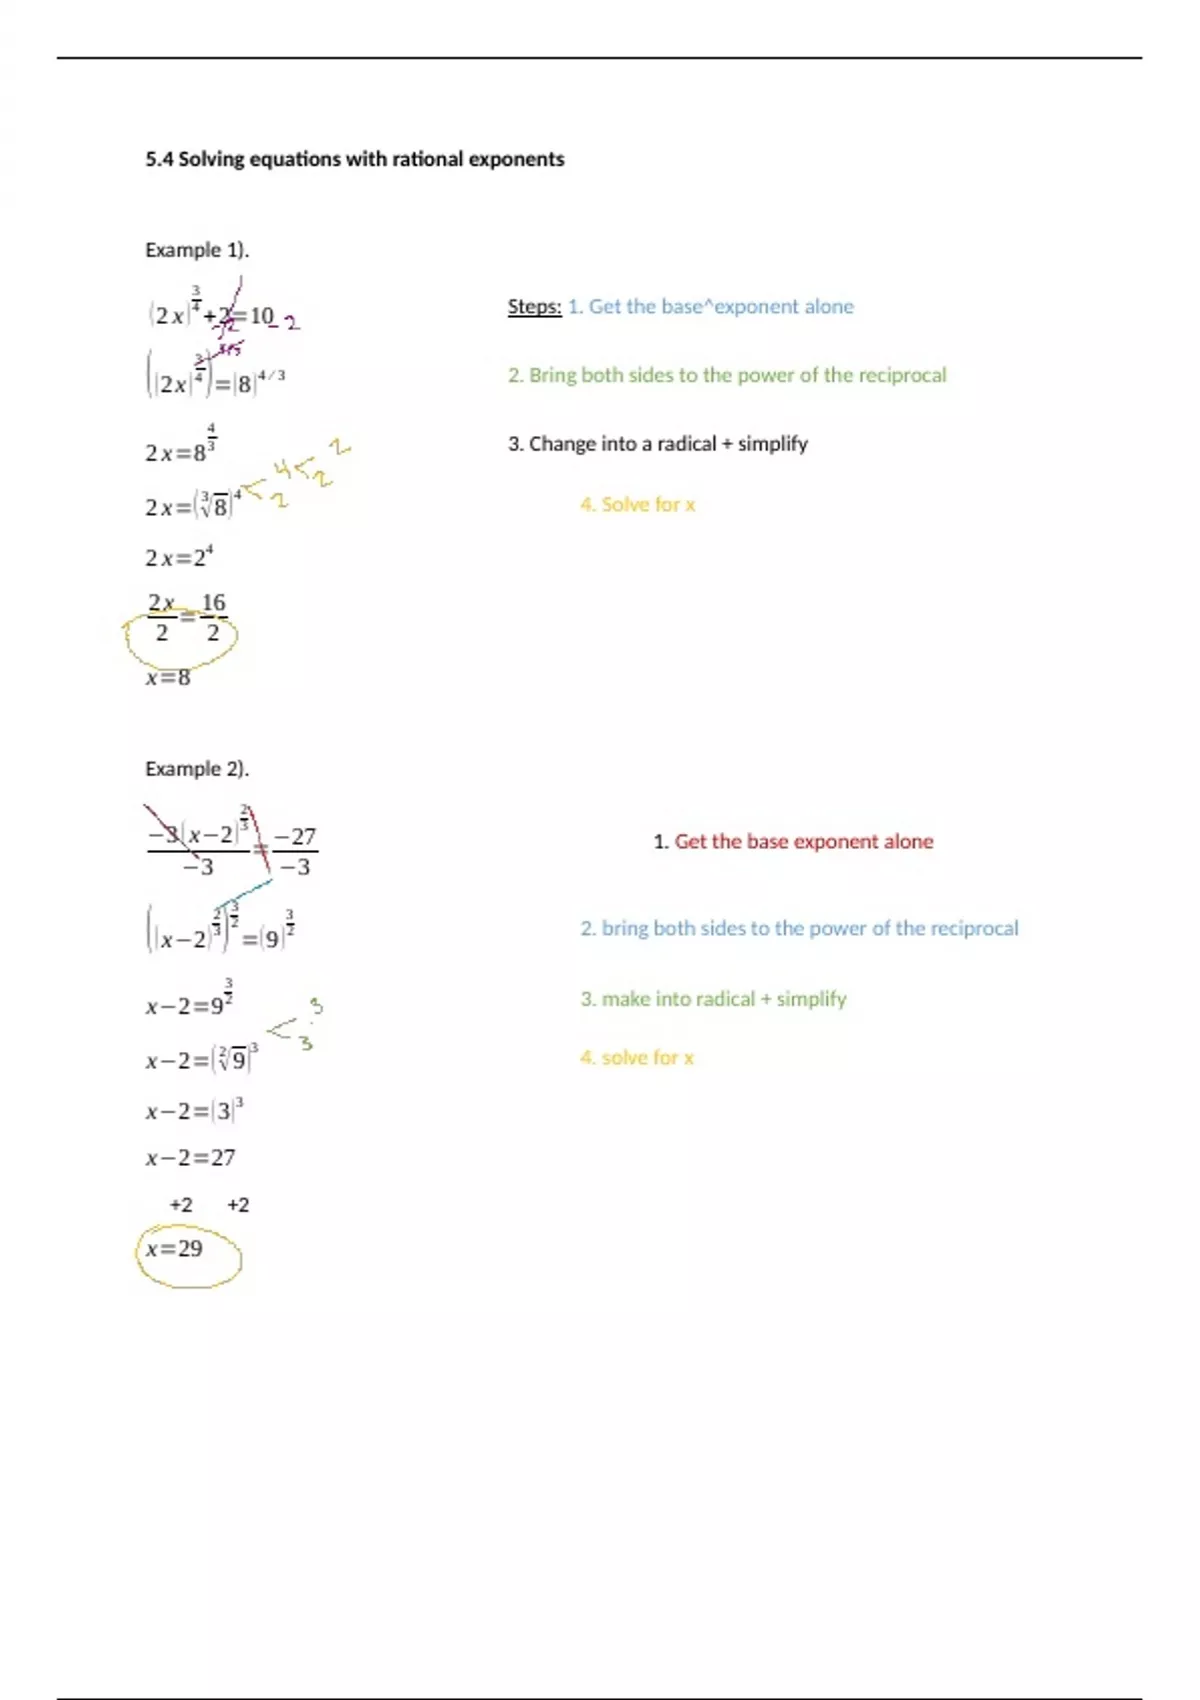 5.4 Solving equations with rational exponents
Example 1).
(2x)^{3/4}+2=10 -2 -2
Steps: 1. Get the base^exponent alone
((2x)^{3/4})=(8)^{4/3}
2. Bring both sides to the power of the reciprocal
2x=8^{4/3}
3. Change into a radical + simplify
2x=(∛8)^4 < 4 < 2
2 2
4. Solve for x
2x=2^4
2x/2=16/2
x=8
Example 2).
−3(x−2)^{2/3}/−3=−27/−3
1. Get the base exponent alone
((x−2)^{2/3})^{3/2}=(9)^{3/2}
2. bring both sides to the power of the reciprocal
x−2=9^{3/2}
3. make into radical + simplify
< 3
3
x−2=(²√9)^3
4. solve for x
x−2=(3)^3
x−2=27
+2 +2
x=29